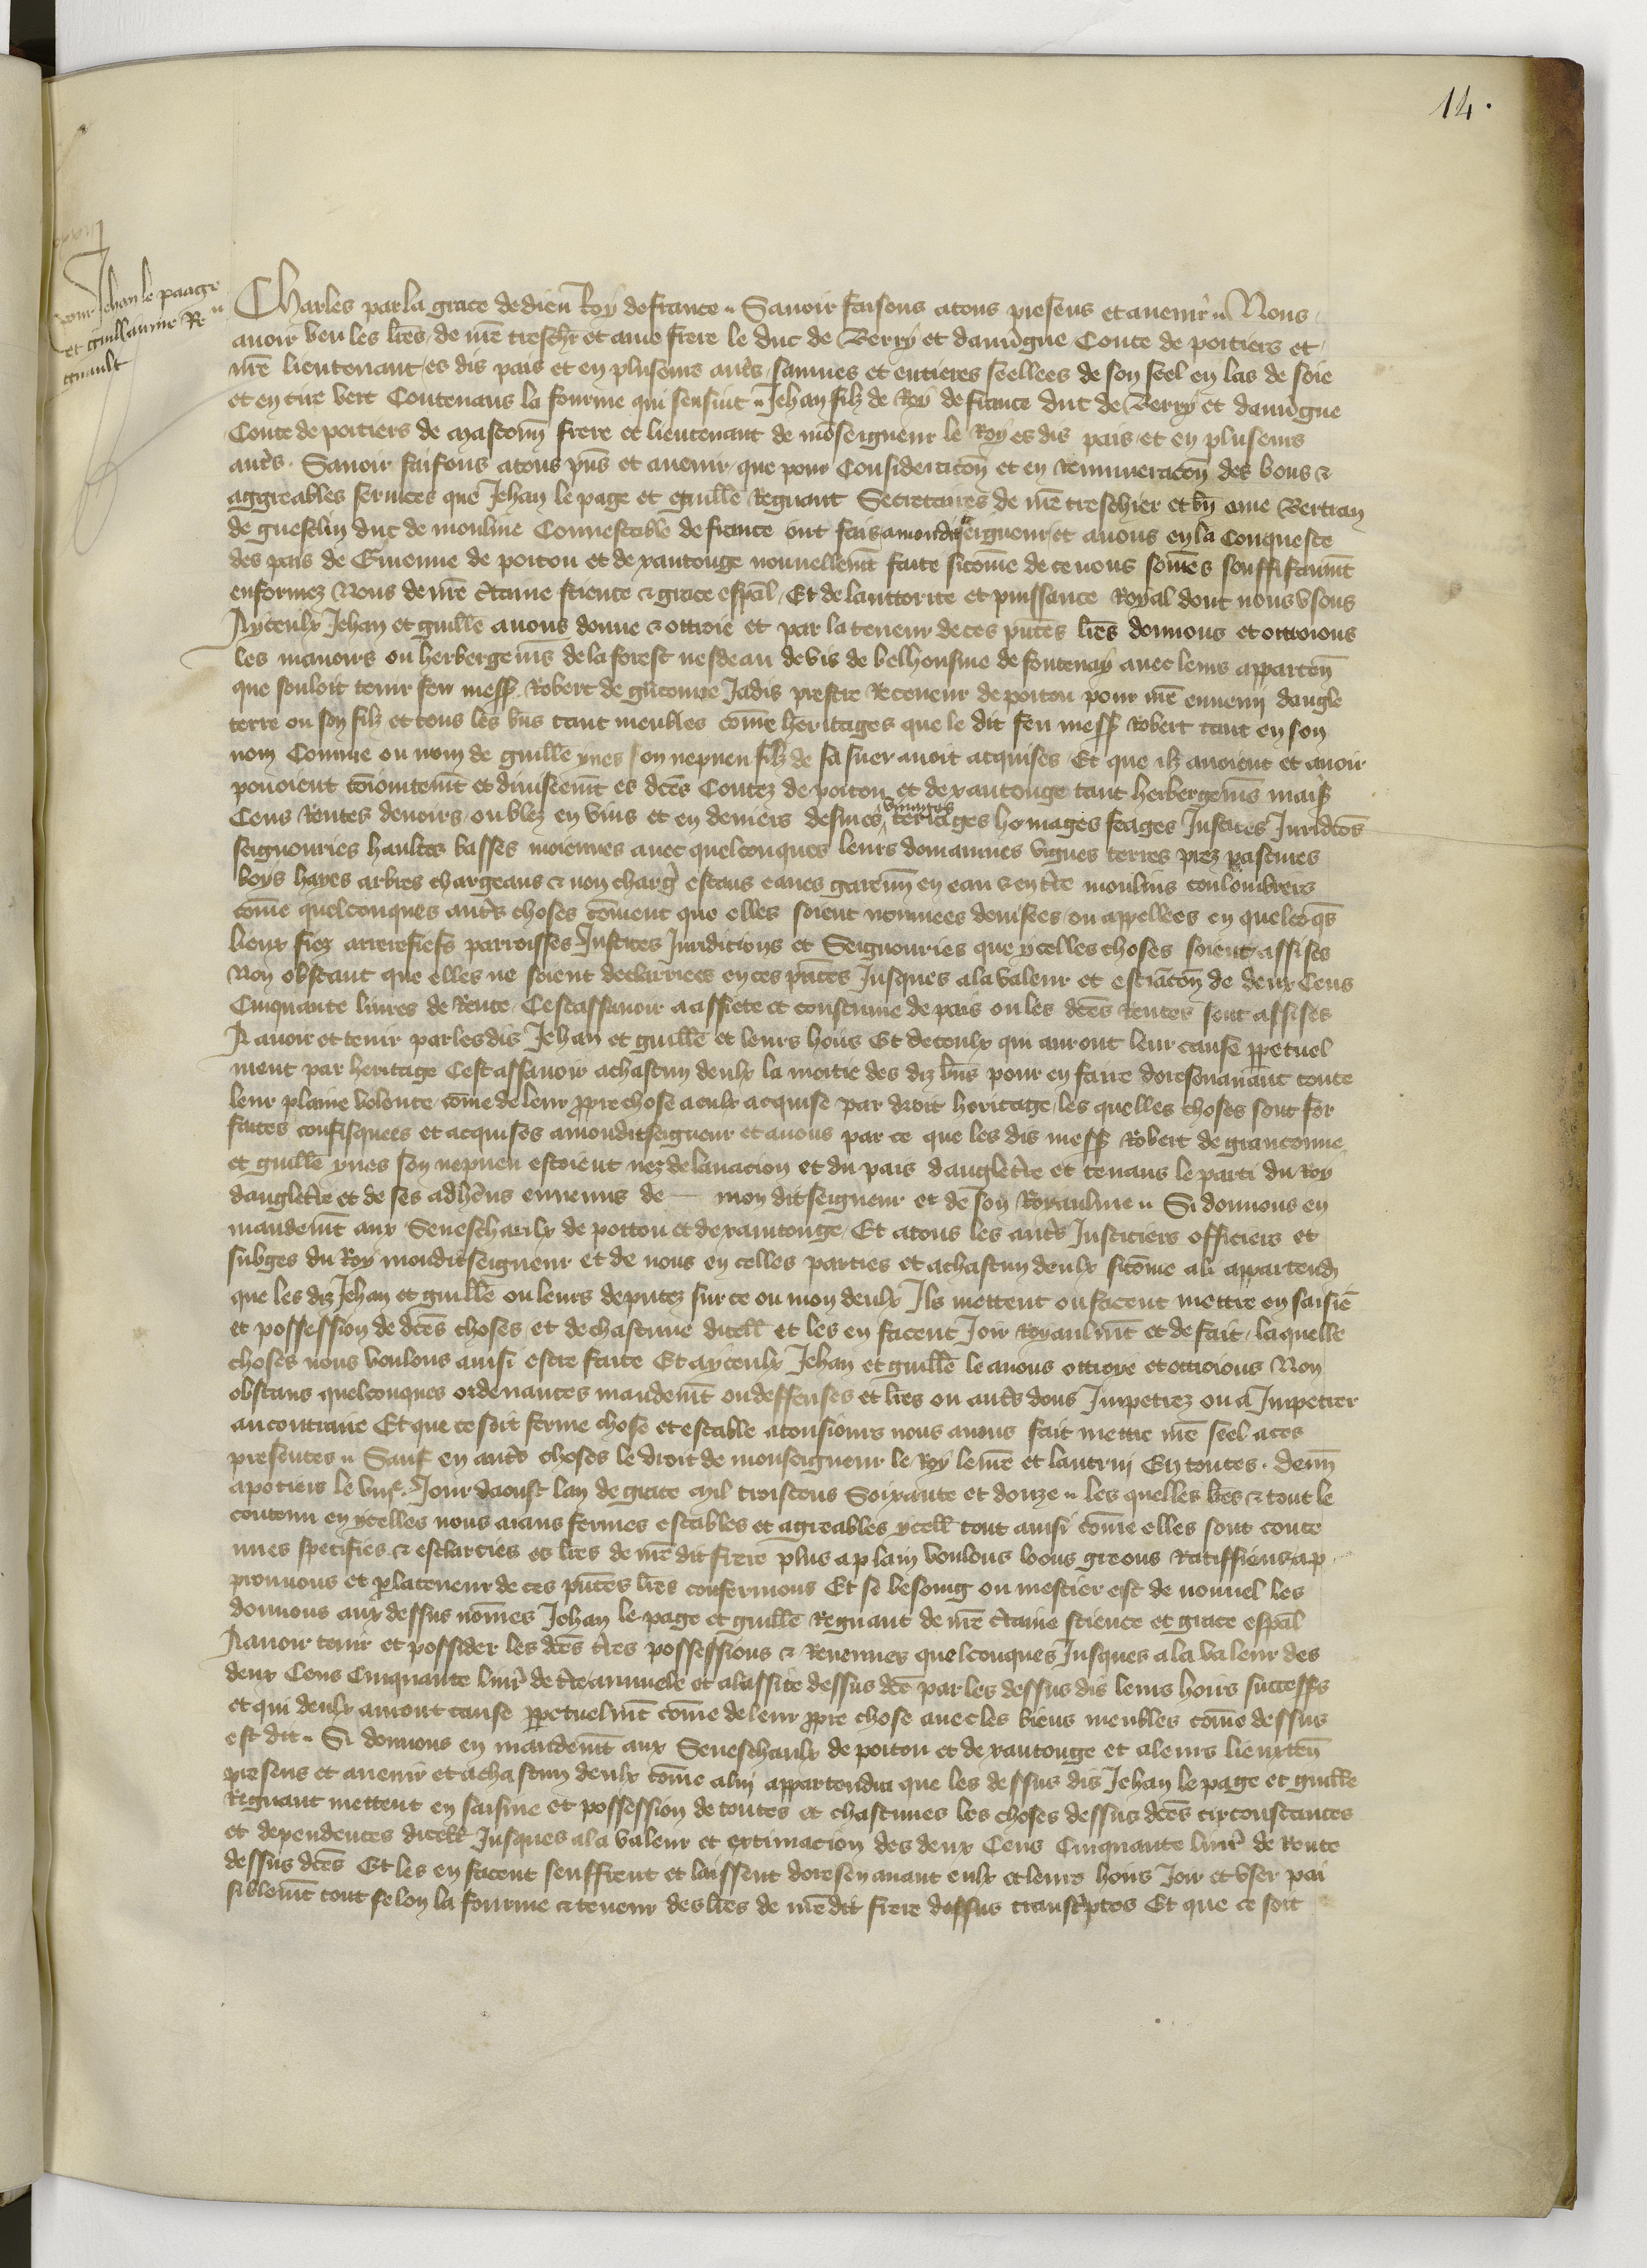 14.
pour Jehan le paage
et guillaume Re
gnault
Charles par la grace de dieu Roy de france. Savoir faisons a tous presens et avenir. Nous
avoir veu les lrēs de nrē treschr̄ et ame frere le duc de Berry et dauv̄gne Conte de poitiers et
nrē lieutenant es dis pais et en pluseurs autr̄s sainnes et entieres seellees de son seel en las de soie
et en cire vert Contenans la fourme qui sensuit. Jehan filz de Roy de france duc de Berry et dauv̄gne
Conte de poitiers de masconn̄ frere et lieutenant de mōseigneur le Roy es dis pais et en pluseurs
autr̄s. Savoir faisons a tous pn̄s et avenir que pour Consideracōn et en Remuneracōn des bons &
aggreables services que Jehan le page et guillē Regnaut Secretaires de nrē treschier et bn̄ ame Bertran
de guesclin duc de mouline Connestable de france ont fais a mondit seigneur et a nous en la Conqueste
des pais de Guienne de poitou et de xantonge nouvellemt̄ faite sicōme de ce nous somēs souffisaumt̄
enformez Nous de nrē c̄taine science & grace esp̄al Et de lauttorite et puissance Royal dont nous usons
A yceulx Jehan et guillē avons donne & ottroie et par la teneur de ces pn̄tes lrēs donnons et ottroions
les manoirs ou herbergemn̄s de la forest nesdeau de vis de belhousme de fontenay avec leurs apparten̄
que souloit tenir feu mess̄ Robert de gn̄conne Jadis prestre Receveur de poitou pour nrē ennemi dangle
terre ou son filz et tous les bn̄s tant meubles cōme heritages que le dit feu mess̄ Robert tant en son
nom Comme ou nom de guillē yves son nepveu filz de sa suer avoit acquises Et que ilz avoient et avoir
povoient cōiointemt̄ et diviseemt̄ es dc̄es Contez de poitou et de xantonge tant herbergemn̄s mais̄
Cens Rentes devoirs ou blez en vins et en deniers desmes vinages terrages homages feages Justices Juridc̄os
seignouries haultes basses moiennes avec quelconques leurs domainnes vignes terres prez pastures
boys hayes arbres chargeans & non charg̃ estans eaues garenn̄ en eau & en tr̄e moulins coulombiers
cōme quelconques autr̄s choses cōment que elles soient nommees devisees ou appellees en quelcōq̄s
lieux fiez arrerefiefs parroisses Justices Juridicions et Seignouries que ycelles choses soient assises
Non obstant que elles ne soient declairiees en ces pn̄tes Jusques a la valeur et estimacōn de deux Cens
Cinquante livres de Rente Cestassavoir a assiete et coustume de pais ou les dc̄es Rentes sont assises
A avoir et tenir par les dis Jehan et guillē et leurs hoirs Et de ceulx qui auront leur cause ꝑpetuel
ment par heritage Cestassavoir a chascun deulx la moitie des diz bn̄s pour en faire doresenavant toute
leur plaine volente cōme de leur ꝓpre chose a eulx acquise par droit heritage les quelles choses sont for
faites confisquees et acquises a mondit seigneur et a nous par ce que les dis mess̄ Robert de granconne
et guillē yves son nepveu estoient nez de la nacion et du pais dangletr̄e et tenans le parti du Roy
dangletr̄e et de ses adhn̄s ennemis de mon dit seigneur et de son Royaulme. Si donnons en
mandemt̄ aux Seneschaulx de poitou et de xaintonge Et a tous les autr̄s Justiciers officiers et
subges du Roy mondit seigneur et de nous en celles parties et a chascun deulx sicōme a li appartendr̄
que les diz Jehan et guillē ou leurs deputez sur ce ou mon deulx Ils mettent ou facent mettre en saisiē
et possession de dc̄es choses et de chascune dicell̄ et les en facent Joir Royaulmt̄ et de fait laquelle
choses nous voulons ainsi estre faite Et a yceulx Jehan et guillē le avons ottroye et ottroions Non
obstans quelconques ordenances mandemt̄ ou deffenses et lrēs ou autr̄s dons Impetrez ou a Impetrer
au contraire Et que ce soit ferme chose et estable a tousiours nous avons fait mettre nrē seel a ces
presentes. Sauf en autr̄s choses le droit de monseigneur le Roy le nrē et lautrui En toutes. Donn̄
a potiers le viiie. Jour daoust lan de grace mil troiscens Soixante et douze. les quelles lrēs & tout le
contenu en ycelles nous aians fermes estables et agreables ycell̄ tout ainsi cōme elles sont conte
nues specifies & esclarcies es lrēs de nrē dit frere plus a plain voulons loons greons Ratiffions ap
prouvons et ꝑ la teneur de ces pn̄tes lrēs confermons Et se besoing ou mestier est de nouvel les
donnons aux dessus nōmes Jehan le page et guillē Regnaut de nrē c̄taine science et grace esp̄al
A avoir tenir et possider les dc̄es tr̄es possessions & Revenues quelconques Jusques a la valeur des
deux Cens Cinquante livr̄ de r̄te annuele et a lassite dessus dc̄e par les dessus dis leurs hoirs successrs̄
et qui deulx auront cause ꝑpetuelmt̄ cōme de leur ꝓpre chose avec les biens meubles cōme dessus
est dit. Si donnons en mandemt̄ aux Seneschaulx de poitou et de xantonge et a leurs lieuxten̄
presens et avenir et a chascun deulx cōme a lui appartendra que les dessus dis Jehan le page et guillē
Regnaut mettent en saisine et possession de toutes et chascunes les choses dessus dc̄es circonstances
et dependences dicell̄ Jusques a la valeur et extimacion des deux Cens Cinquante livr̄ de Rente
dessus dc̄es Et les en facent seuffrent et laissent doresenavant eulx et leurs hoirs Joir et user pai
siblemt̄ tout selon la fourme & teneur des lrēs de nrē dit frere dessus transcr̄ptes Et que ce soit